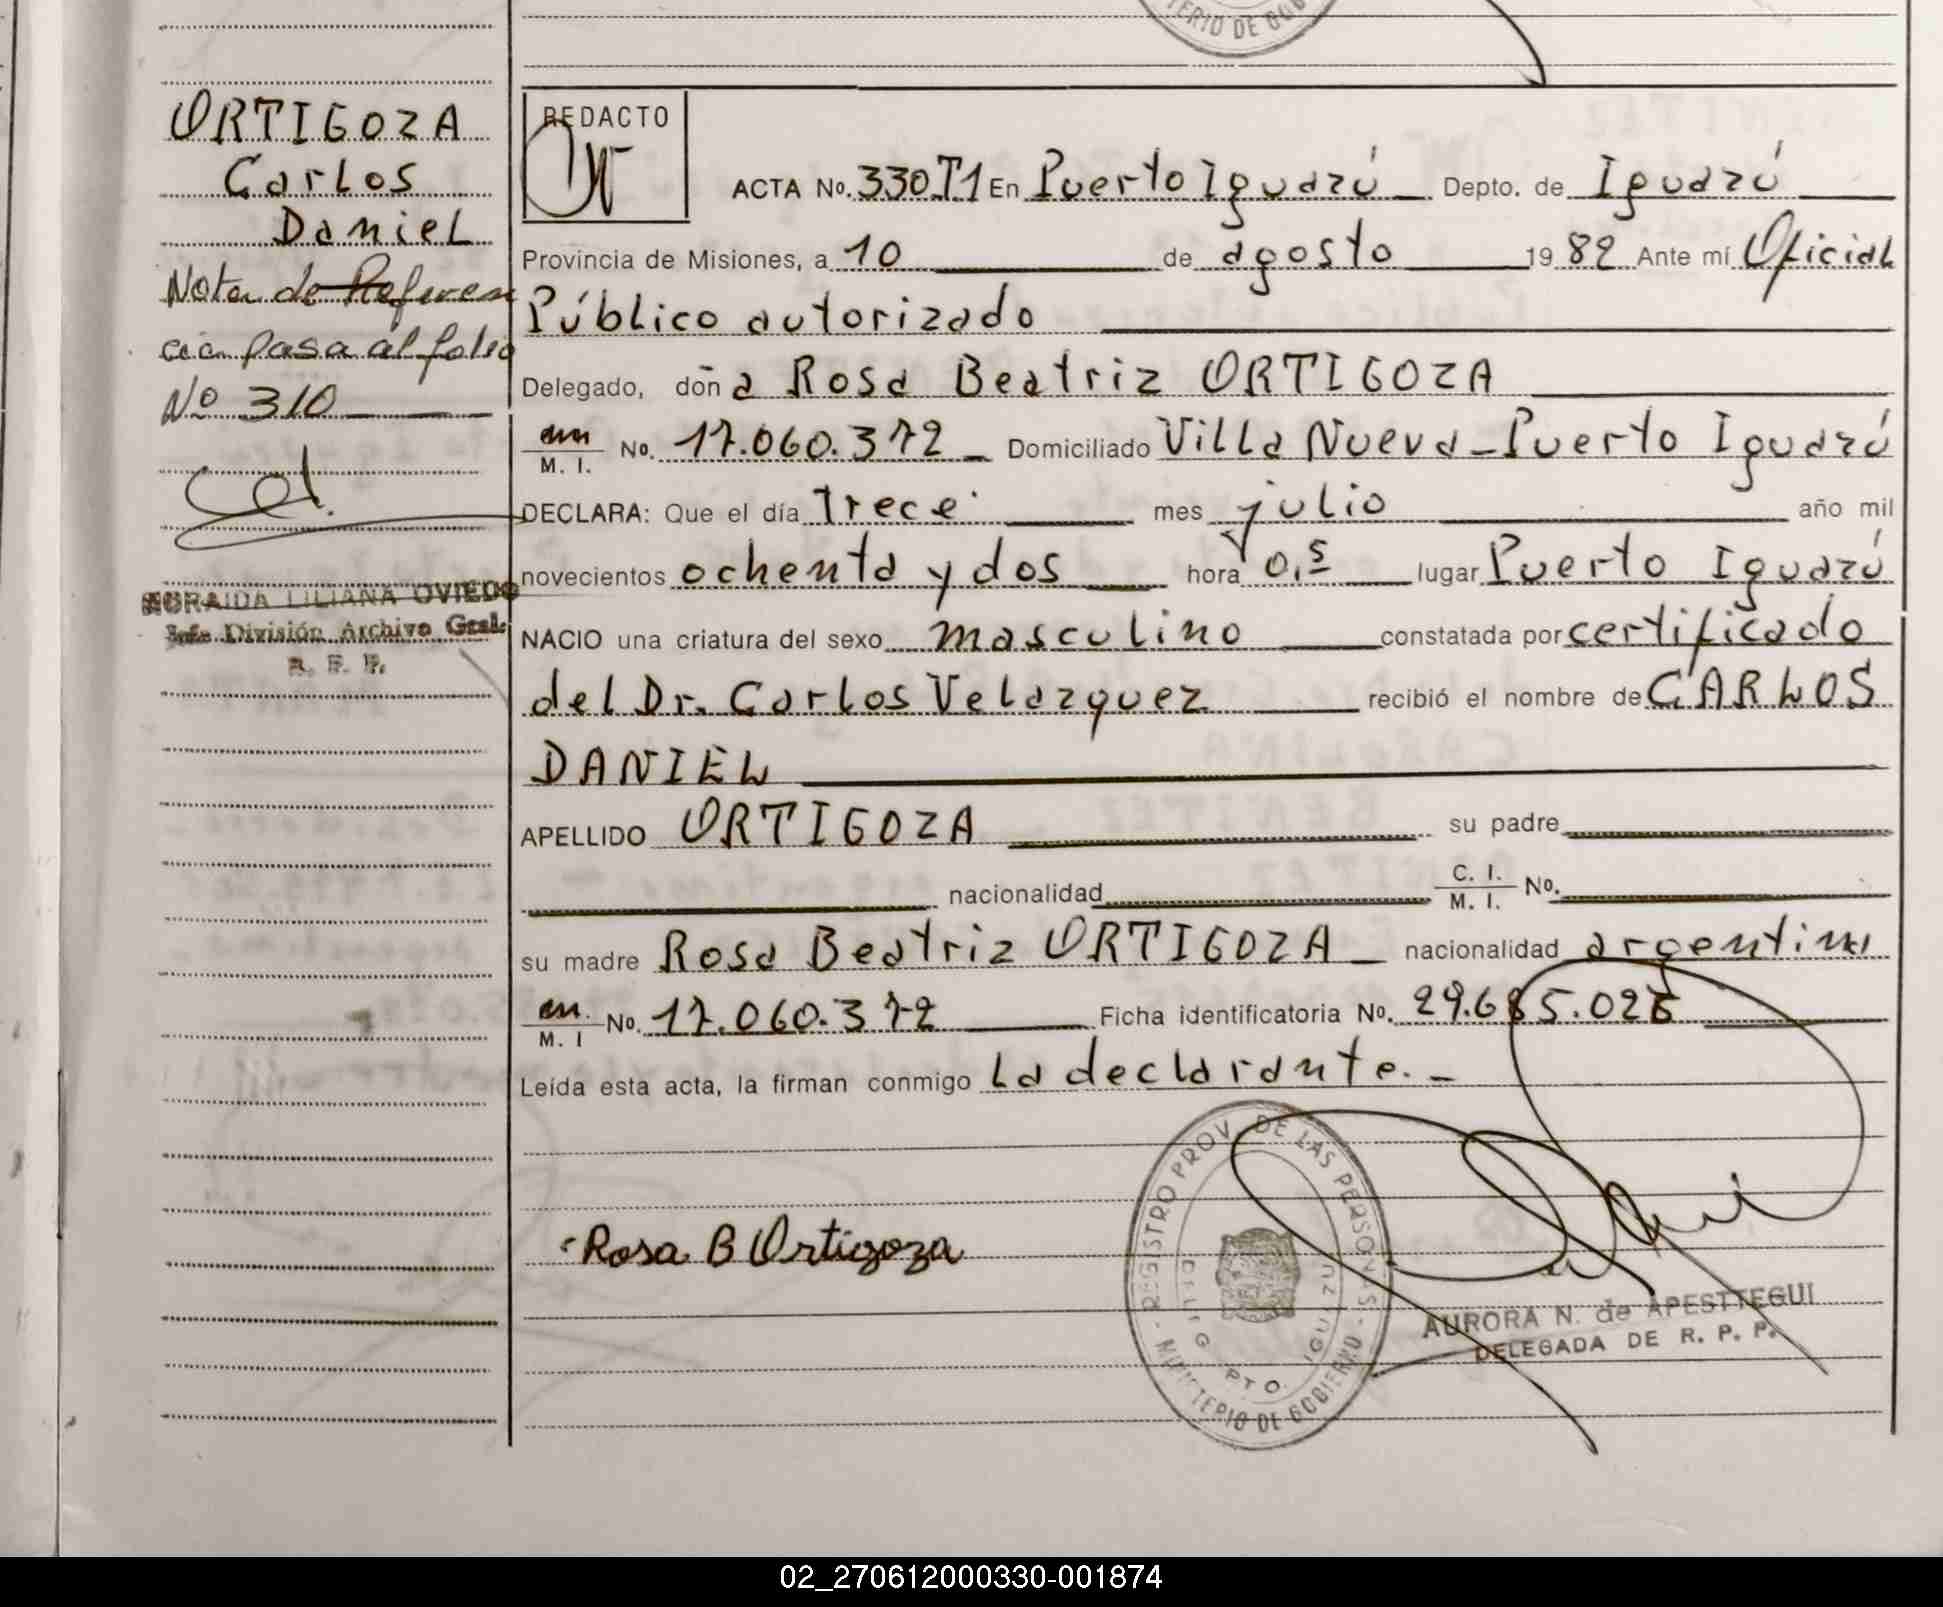 TERIO DE GOB
ORTIGOZA
Carlos
Daniel
Nota de Referen
cia pasa al folio
Nº 310
ZORAIDA LILIANA OVIEDO
Jefe División Archivo Gral.
R. P. P.
REDACTO
ACTA No. 330 T1 En Puerto Iguazú Depto. de Iguazú
Provincia de Misiones, a 10 de agosto 1982 Ante mí Oficial
Público autorizado
Delegado, doña Rosa Beatriz ORTIGOZA
M. I. No. 17.060.372 Domiciliado Villa Nueva - Puerto Iguazú
DECLARA: Que el día Trece mes julio año mil
novecientos ochenta y dos hora 0,5 lugar Puerto Iguazú
NACIO una criatura del sexo masculino constatada por certificado
del Dr. Carlos Velazquez recibió el nombre de CARLOS
DANIEL
APELLIDO ORTIGOZA su padre
nacionalidad C. I. M. I. No.
su madre Rosa Beatriz ORTIGOZA nacionalidad argentina
M. I No. 17.060.372 Ficha identificatoria No. 29.685.026
Leída esta acta, la firman conmigo La declarante.-
REGISTRO PROV. DE LAS PERSONAS - MINISTERIO DE GOBIERNO -
DELEG. PTO. IGUAZU
Rosa B Ortigoza
AURORA N. de APESTTEGUI
DELEGADA DE R. P. P.
02_270612000330-001874